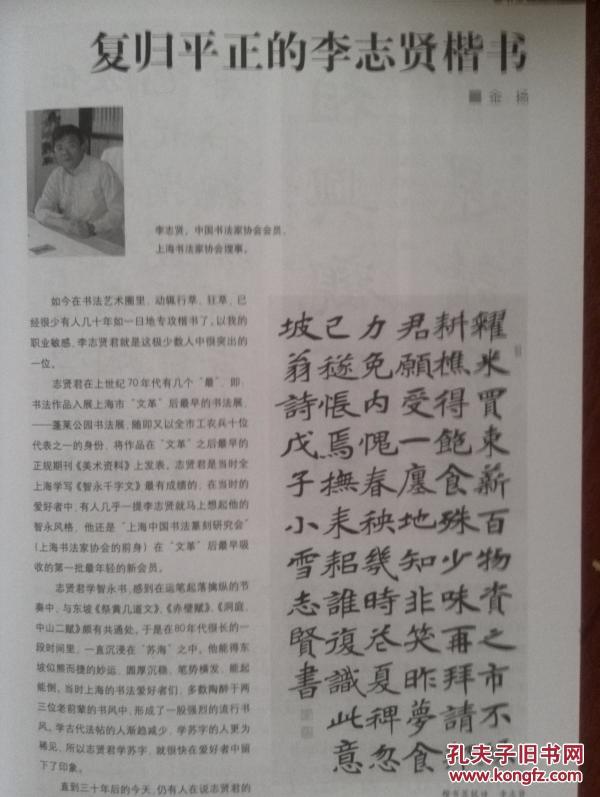 复归平正的李志贤楷书
■ 金 扬
李志贤，中国书法家协会会员，
上海书法家协会理事。
如今在书法艺术圈里，动辄行草、狂草，已
经很少有人几十年如一日地专攻楷书了。以我的
职业敏感，李志贤君就是这极少数人中很突出的
一位。
志贤君在上世纪70年代有几个“最”，即：
书法作品入展上海市“文革”后最早的书法展，
——蓬莱公园书法展，随即又以全市工农兵十位
代表之一的身份，将作品在“文革”之后最早的
正规期刊《美术资料》上发表。志贤君是当时全
上海学写《智永千字文》最有成绩的，在当时的
爱好者中，有人几乎一提李志贤就马上想起他的
智永风格，他还是“上海中国书法篆刻研究会”
（上海书法家协会的前身）在“文革”后最早吸
收的第一批最年轻的新会员。
志贤君学智永书，感到在运笔起落擒纵的节
奏中，与东坡《祭黄几道文》、《赤壁赋》、《洞庭、
中山二赋》颇有共通处。于是在80年代很长的一
段时间里，一直沉浸在“苏海”之中。他能得东
坡似熊而捷的妙运，圆厚沉稳，笔势横发，能起
能倒。当时上海的书法爱好者们，多数陶醉于两
三位老前辈的书风中，形成了一股强烈的流行书
风。学古代法帖的人渐趋减少，学苏字的人更为
稀见，所以志贤君学苏字，就很快在爱好者中留
下了印象。
直到三十年后的今天，仍有人在说志贤君的
糴米買束薪百物資之市不
耕樵得飽食殊少味再拜請
君願受一廛地知非笑昨夢食
力免内愧春秧幾時花夏稗忽
已穟悵焉撫耒耜誰復識此意
坡翁詩戊子小雪志賢書
楷书苏轼诗 李志贤
孔夫子旧书网
www.kongfz.com